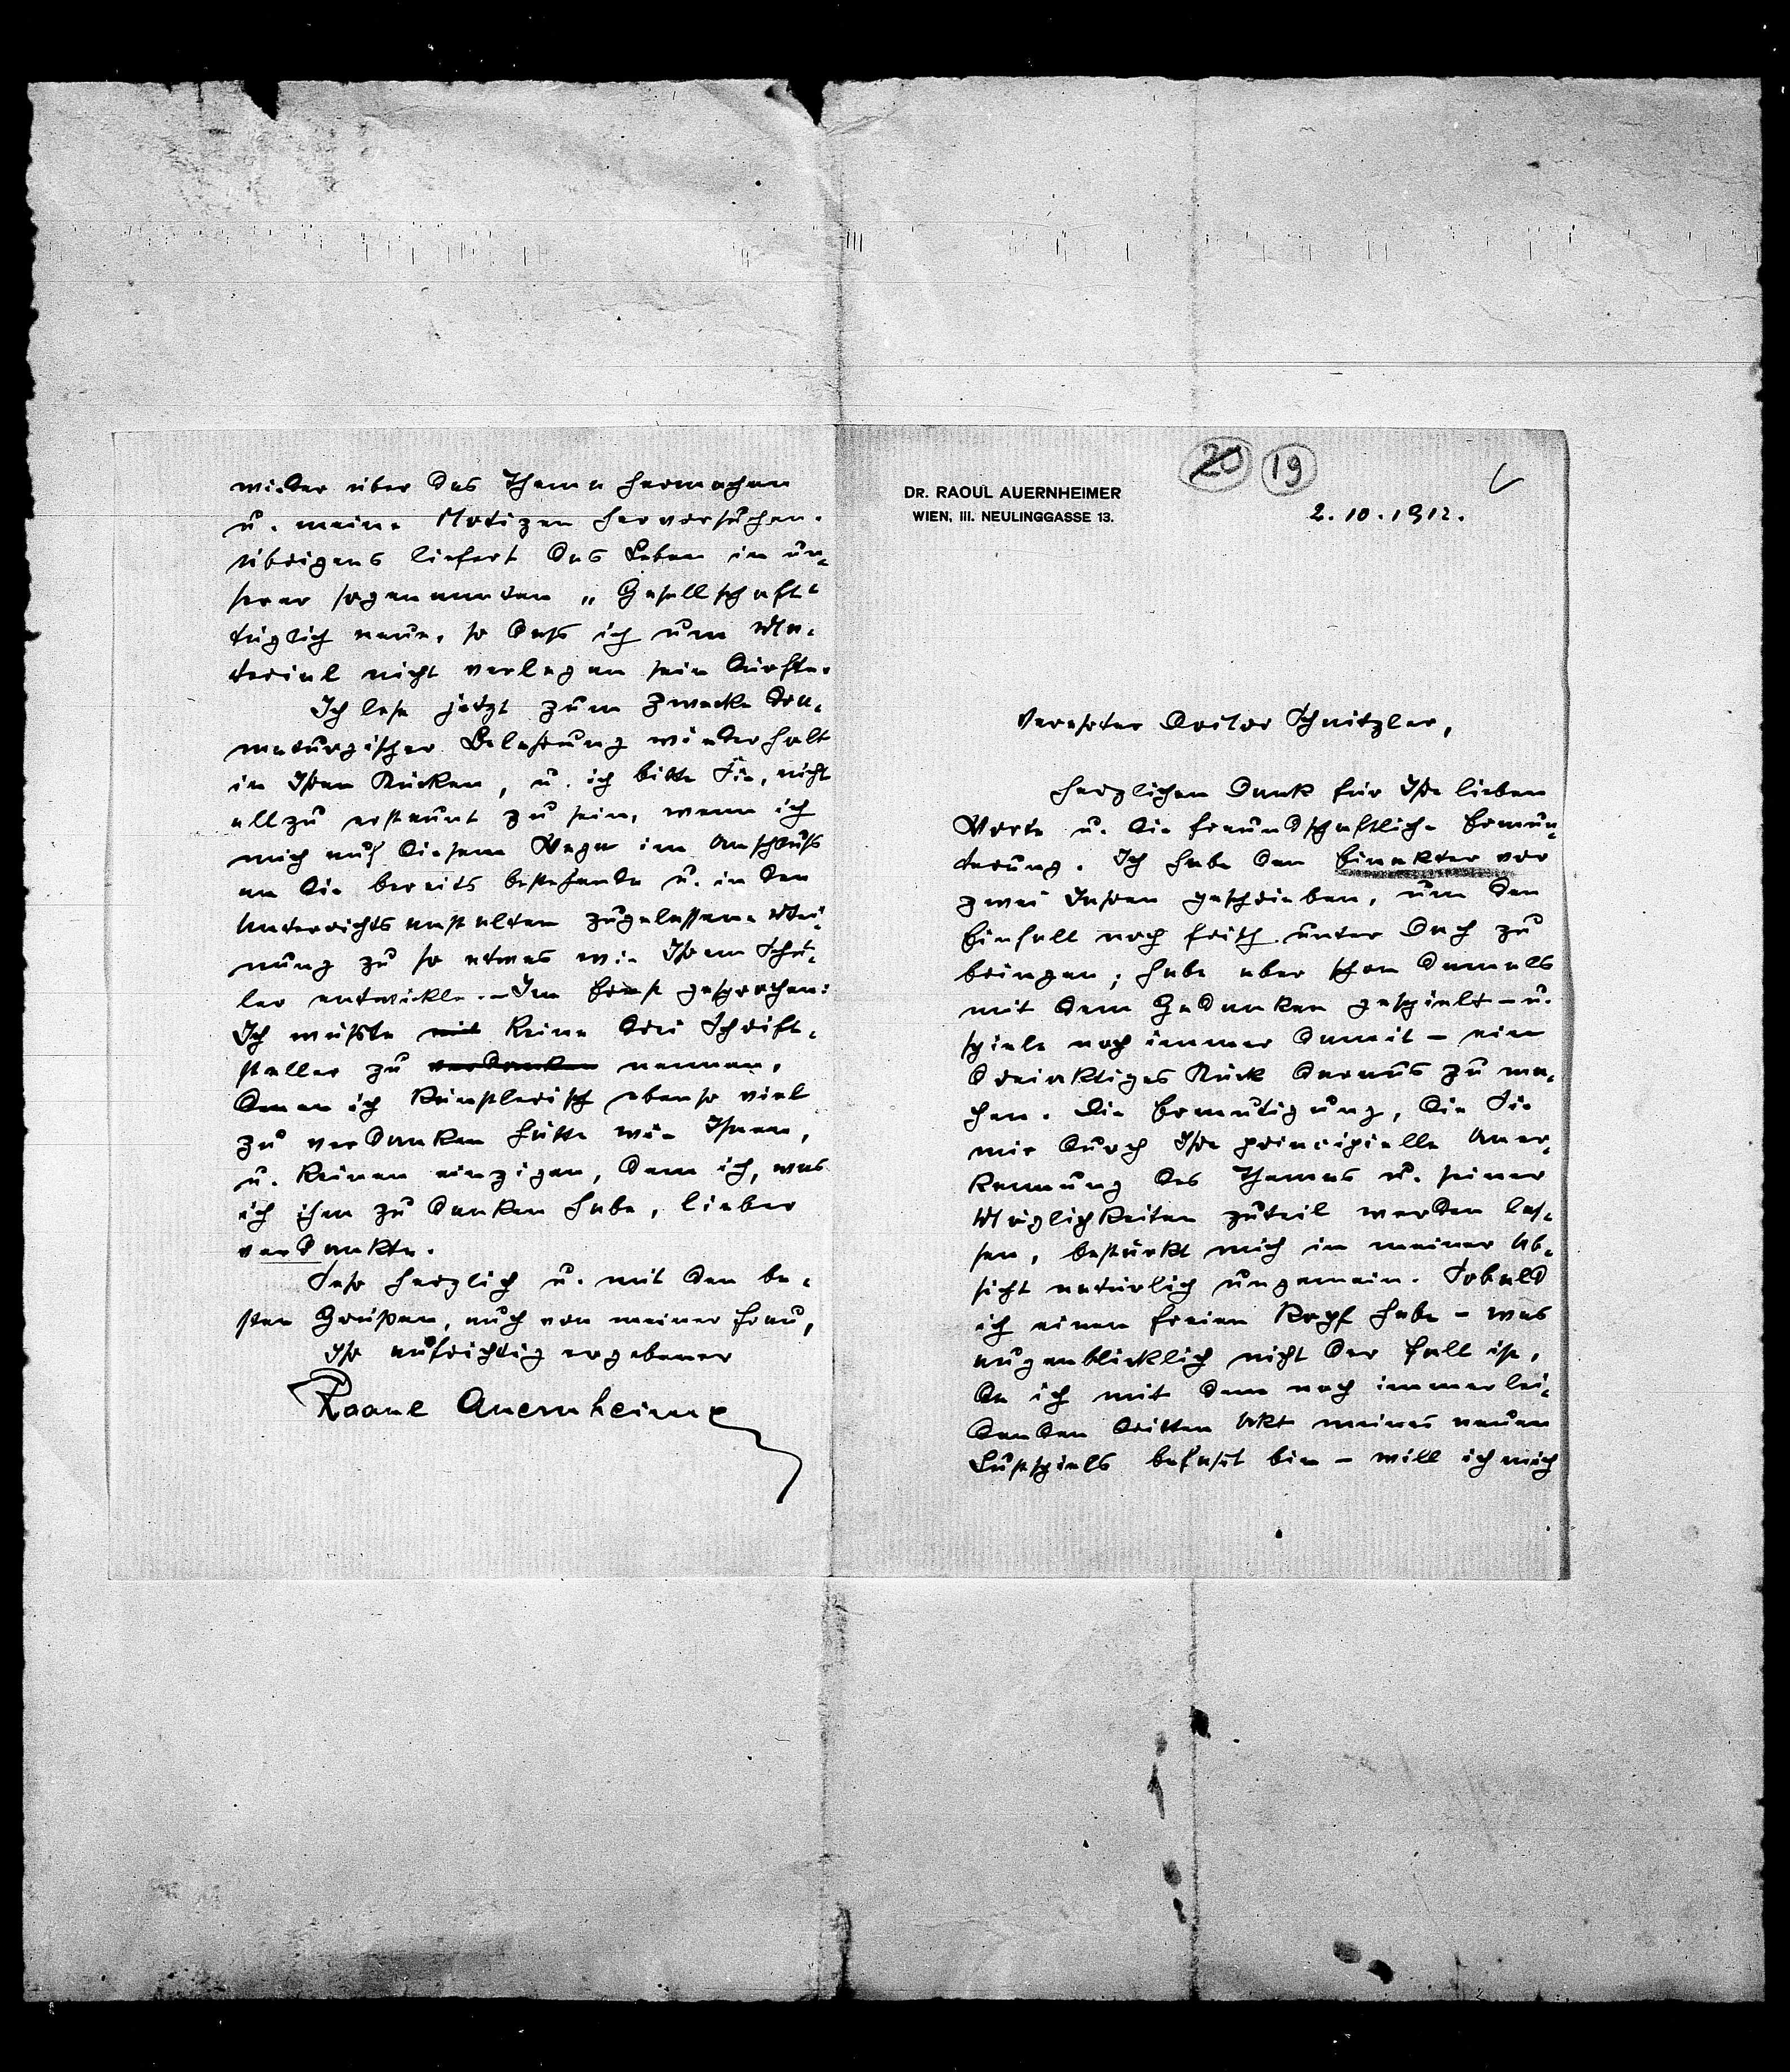 20 19
DR. RAOUL AUERNHEIMER
WIEN, III. NEULINGGASSE 13.
2.10.1912.
Verehrter Doctor Schnitzler,
herzlichen Dank für Ihre lieben
Worte u. die freundschaftliche Ermun-
terung. Ich habe den Einakter vor
zwei Jahren geschrieben, um den
Einfall noch frisch unter Dach zu
bringen; habe aber schon damals
mit dem Gedanken gespielt – u.
spiele noch immer damit – ein
dreiaktiges Stück daraus zu ma-
chen. Die Ermutigung, die Sie
mir durch Ihre principielle Aner-
kennung des Themas u. seiner
Möglichkeiten zuteil werden las-
sen, bestärkt mich in meiner Ab-
sicht natürlich ungemein. Sobald
ich einen freien Kopf habe – was
augenblicklich nicht der Fall ist,
da ich mit dem noch immer lei-
denden dritten Akt meines neuen
Lustspiels befasst bin – will ich mich
wieder über das Thema hermachen
u. meine Notizen hervorsuchen.
Übrigens liefert das Leben in un-
serer sogenannten „Gesellschaft“
täglich neue, so dass ich um Ma-
terial nicht verlegen sein dürfte.
Ich lese jetzt zum Zwecke dra-
maturgischer Belehrung wiederholt
in Ihren Stücken, u. ich bitte Sie, nicht
allzu erstaunt zu sein, wenn ich
mich auf diesem Wege im Anschluss
an die bereits bestehende u. in den
Unterrichtsanstalten zugelassene Mei-
nung zu so etwas wie Ihrem Schü-
ler entwickle. – Im Ernst gesprochen:
Ich wüsste mit keine drei Schrift-
steller zu verdanken nennen,
denen ich künstlerisch ebenso viel
zu verdanken hätte wie Ihnen,
u. keinen einzigen, dem ich, was
ich ihm zu danken habe, lieber
verdankte.
Sehr herzlich u. mit den be-
sten Grüßen, auch von meiner Frau,
Ihr aufrichtig ergebener
Raoul Auernheimer